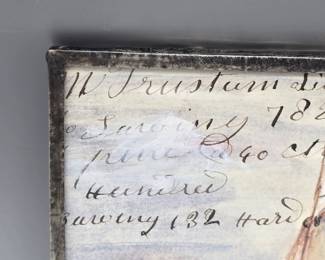 W Trustum
Sawing 78
pine @ 90
Hundred
Sawing 132 Hard